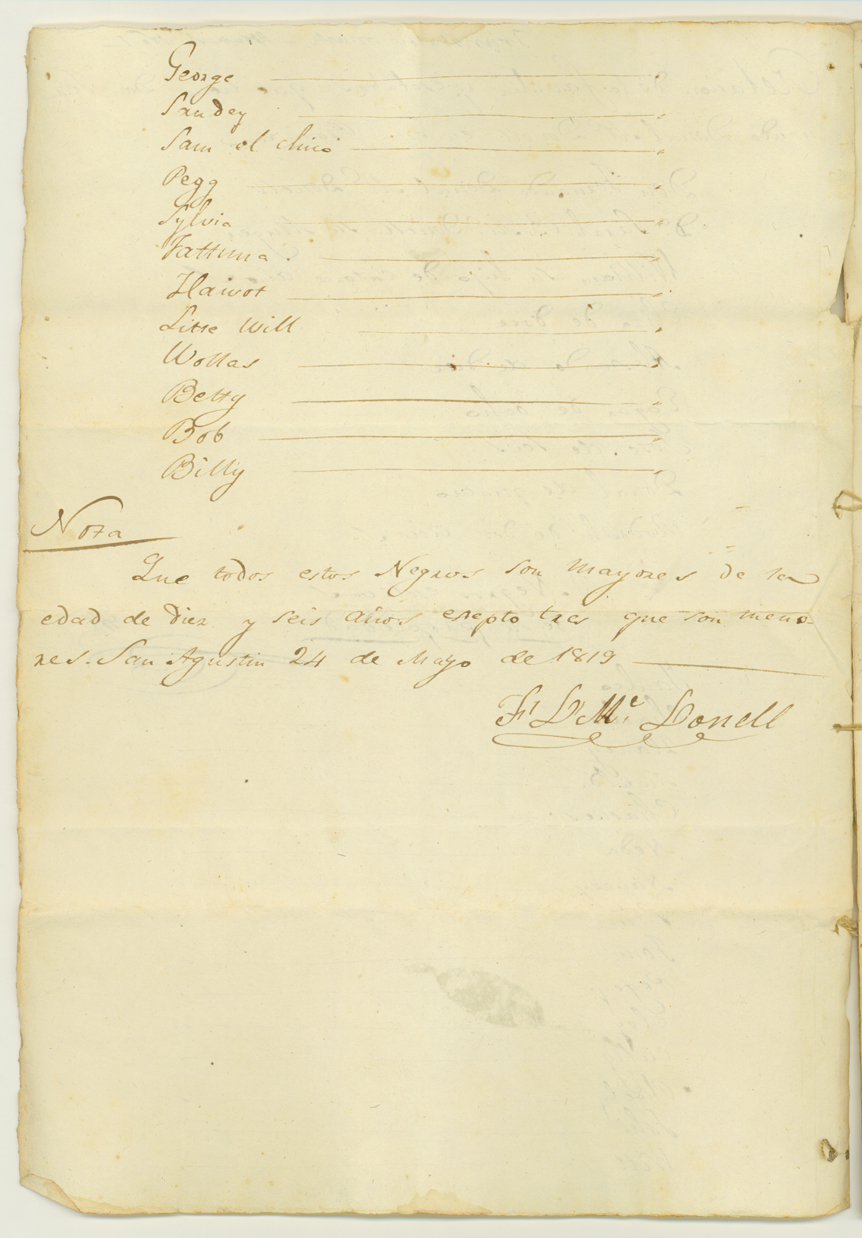 George
Sandey
Sam el chico
Pegg
Sylvia
Fattima
Hawot
Litte Will
Wollas
Betty
Bob
Billy
Nota
Que todos estos Negros son mayores de la
edad de diez y seis años esepto tres que son meno-
res. San Agustin 24 de Mayo de 1819
Donell